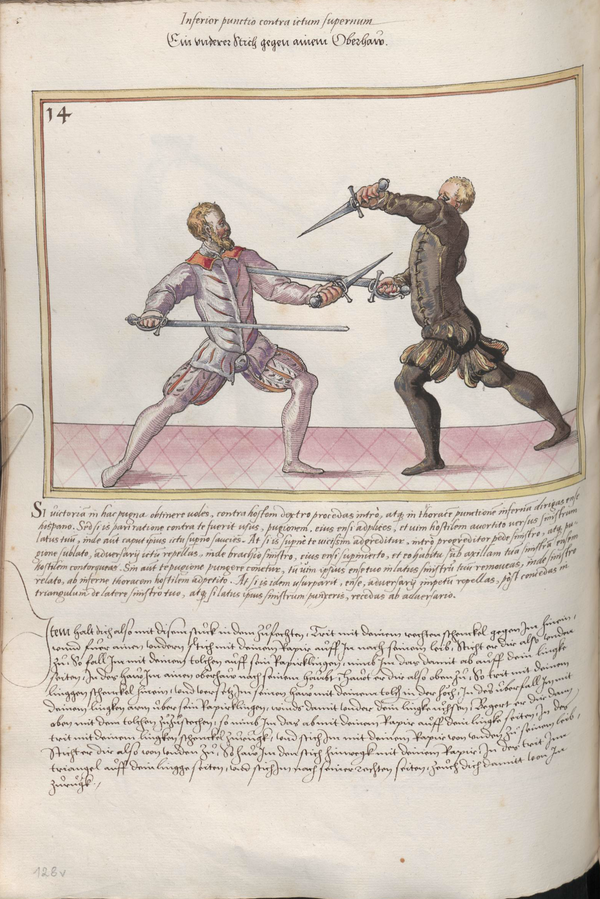 Inferior punctio contra ictum supernum
Ein underer Stich gegen ainem Oberhaw.
14
Si victoria in hac pugna obtinere voles, contra hostem dextro procedas intro, atq, in thoracem punctione inferna dirigas ense
hispano. Sed si is pari ratione contra te fuerit usus, pugionem, eius ensi adplices, et vim hostilem avertito versus sinistrum
latus tuu, inde aut caput ipsius ictu supno saucies. At si is supne te vicissim adgreditur, intro progreditor pede sinistro, atq, pu-
gione sublato, adversarij ictu repellas, inde brachio sinistro, eius ensi supiniecto, et eo habitu sub axillam tua sinistra ensem
hostilem contorqueas. Sin aut te pugione pungere conetur, tu vim ipsius ense tuo in latus sinistru tuu removeas, inde sinistro
relato, ab inferno thoracem hostilem adpetito. At si is idem usurparit, ense, adversarij impetu repellas,
triangulum de latere sinistro tuo, atq, si latus ipsius sinistrum punxeris, recedas ab adversario.
Item halt dich also mit disem stuckh in dem zufechten, Trit mit deinem rechten schenckel gegen Im hinein,
unnd fier ainen undern stich mit deinem Rapir auff In nach seinem leib, Sticht er dir also unden
zu, So fall Im mit deinem tolchen auff sein Rapierklingen, nimb In dar damit ab auff dein lingke
seiten, In des haw Im ainen oberhaw nach seinem haupt, hawt er dir also oben zu, So trit mit deinem
linggen schenckel hinein, und versetz Im seinen haw mit deinem tolch in der hoch, In des uberfall Im mit
deinem lingken arm uber sein Rapierklingen, wind damit under dein lingke uchssen, Begert er dir dan
oben mit dem tolchen zuzustechen, so nimb Im dar ab mit deinem Rapir auff dein lingke seiten, In des
trit mit deinem lingken schenckel zuruckh, und stich Im mit deinem Rapir von unden zu seinem leib,
Sticht er dir also von unden zu, So haw Im den stich hinwegk mit deinem Rapir, In des trit Im
triangel auff dein lingge seiten, und stich Im nach seiner rechten seiten, zeuch dich damit von Im
zuruckh.
128v